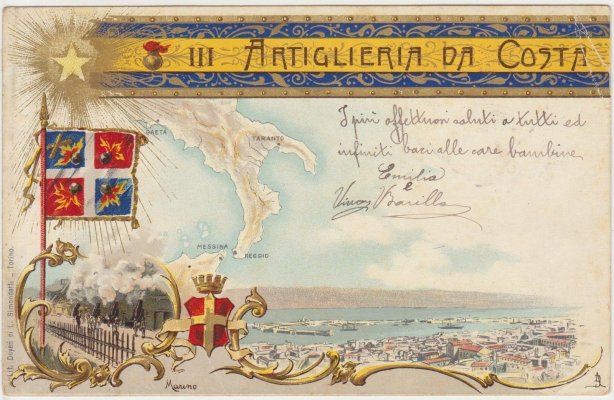 III ARTIGLIERIA DA COSTA
I più affettuosi saluti a tutti ed
infiniti baci alle care bambine
Emilia
e
Barilla
GAETA
TARANTO
MESSINA
REGGIO
Marino
Lit. Doyen di L. Simondetti - Torino.